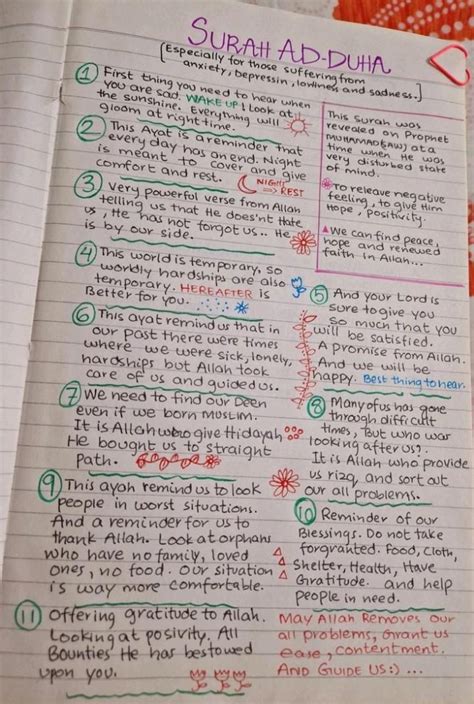 SURAH AD-DUHA
[Especially for those suffering from
anxiety, depressin, lonliness and sadness.]
① First thing you need to hear when
you are sad. WAKE UP! Look at
the sunshine. Everything will
gloom at right time.
② This Ayat is a reminder that
every day has an end. Night
is meant to cover and give
comfort and rest.
NIGHT
=> REST
③ Very powerful verse from Allah
telling us that He does'nt Hate
us, He has not forgot us.. He
is by our side.
This Surah was
revealed on Prophet
MUHAMMAD(SAW) at a
time when He was
very disturbed state
of mind.
To releave negative
feeling, to give Him
Hope, positivity
We can find peace,
hope and renewed
faith in Allah...
④ This world is temporary, so
worldly hardships are also
temporary. HEREAFTER is
Better for you.
⑤ And your Lord is
sure to give you
so much that you
will be satisfied.
A promise from Allah.
And we will be
happy. Best thing to hear.
⑥ This ayat remind us that in
our past there were times
where we were sick, lonely,
hardships but Allah took
care of us and guided us.
⑦ We need to find our Deen
even if we born MUSLIM.
It is Allah who give Hidayah
He bought us to straight
Path.
⑧ Many of us has gone
through difficult
times, But who was
looking after us?
It is Allah who provide
us rizq, and sort out
our all problems.
⑨ This ayah remind us to look
people in worst situations.
And a reminder for us to
thank Allah. Look at orphans
who have no family, loved
ones, no food. Our situation
is way more comfortable.
⑩ Reminder of our
Blessings. Do not take
forgranted. Food, Cloth,
Shelter, Health, Have
Gratitude. and help
people in need.
⑪ Offering gratitude to Allah.
Looking at posivity. All
Bounties He has bestowed
upon you.
May Allah Removes our
all problems, Grant us
ease, contentment.
AND GUIDE US:) ...